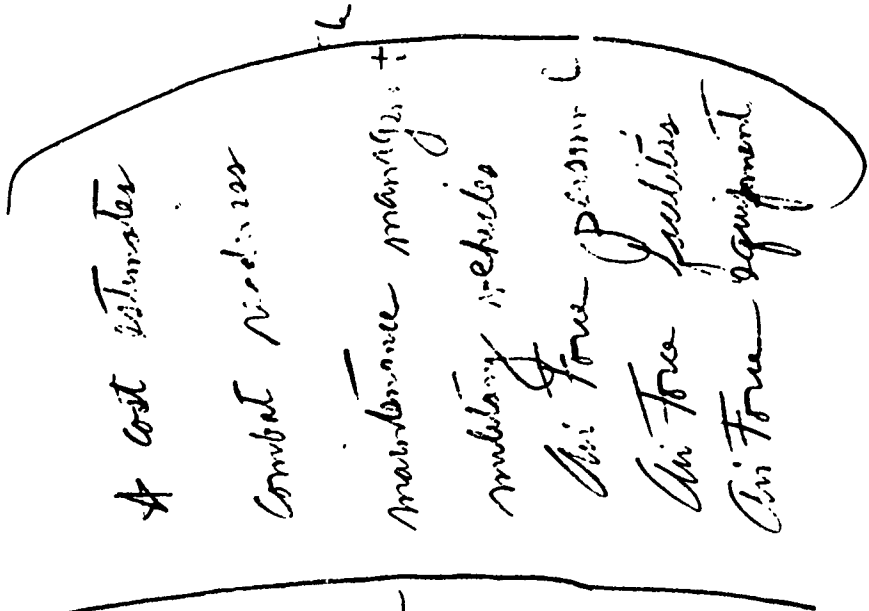 * cost estimates
Combat readiness
maintenance manage
military vehicles
Air Force personnel
Air Force facilities
Air Force equipment